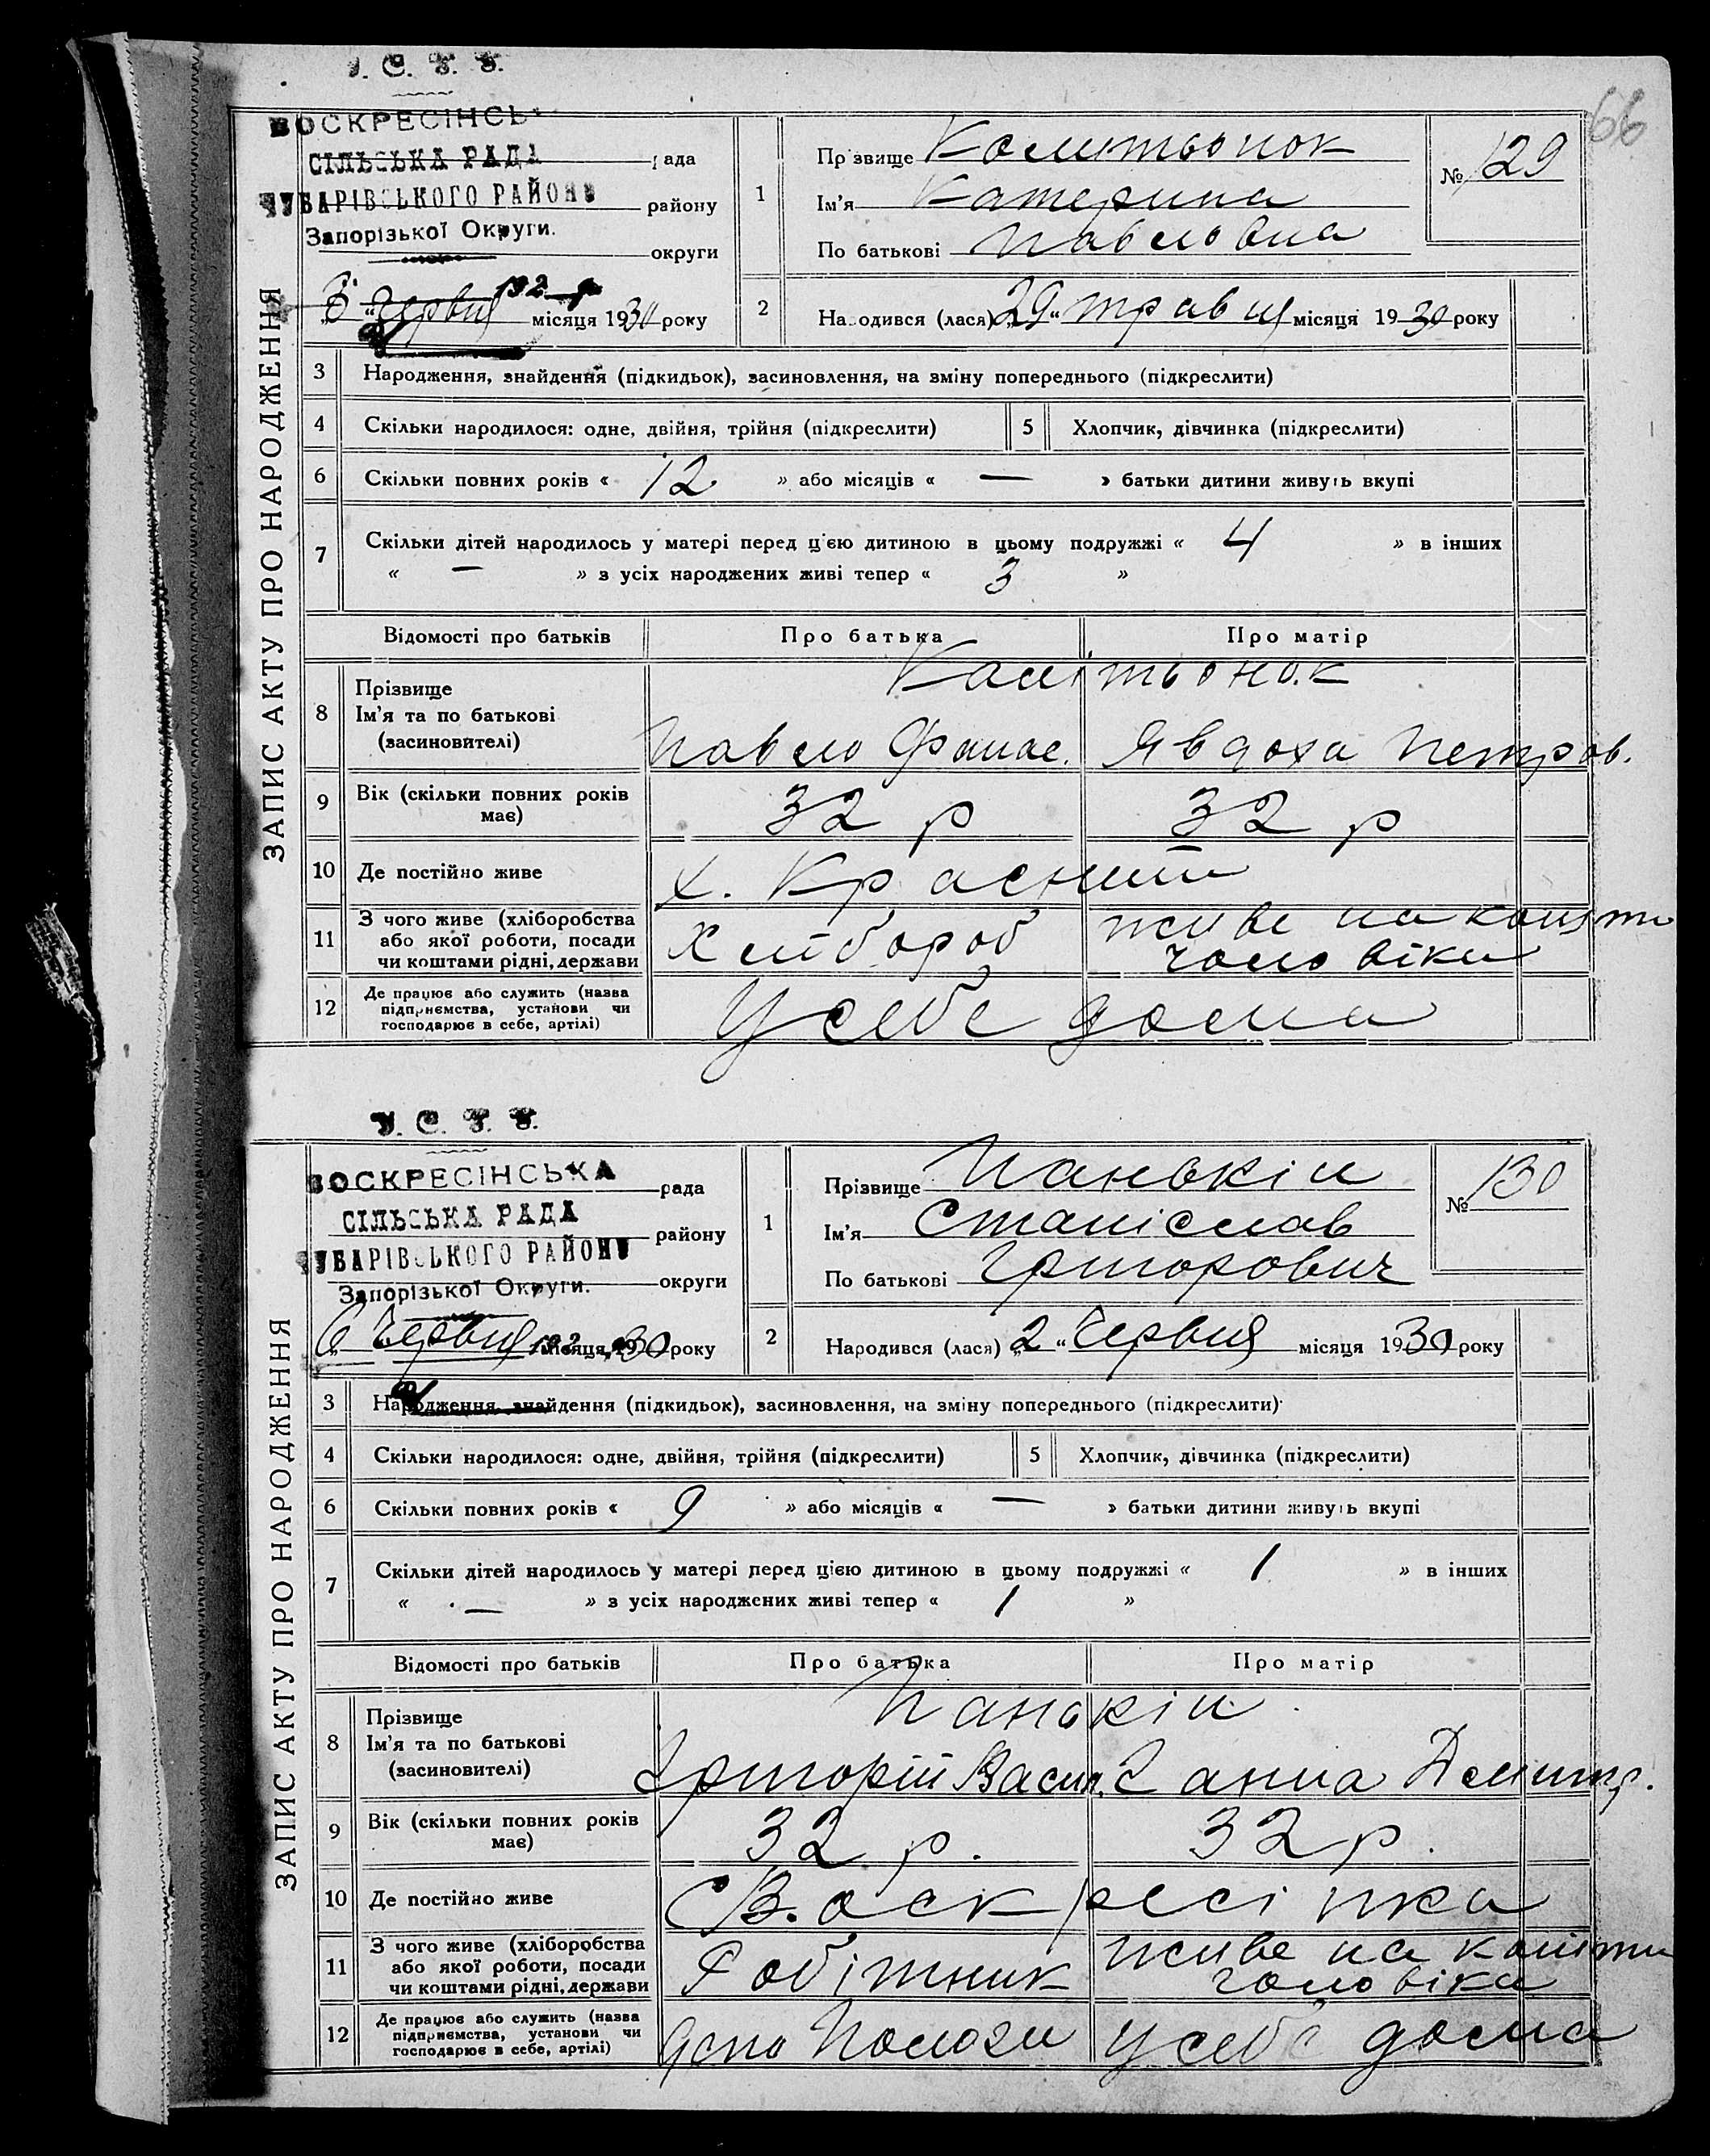 У. С. Р. Р.
66
ВОСКРЕСІНСЬ
СІЛЬСЬКА РАДА рада
ЧУБАРІВСЬКОГО РАЙОНУ району
Запорізької Округи. округи
червня 192 місяця 1930 року
1 Прізвище
Ім'я Катерина
По батькові Павловна
№ 129
2 Народився (лася) „29“ травня місяця 1930 року
ЗАПИС АКТУ ПРО НАРОДЖЕННЯ
3 Народження, знайдення (підкидьок), засиновлення, на зміну попереднього (підкреслити)
4 Скільки народилося: одне, двійня, трійня (підкреслити) 5 Хлопчик, дівчинка (підкреслити)
6 Скільки повних років « 12 » або місяців « — » батьки дитини живуть вкупі
7 Скільки дітей народилось у матері перед цією дитиною в цьому подружжі « 4 » в інших
« — » з усіх народжених живі тепер « 3 »
Відомості про батьків Про батька Про матір
8 Прізвище
Ім'я та по батькові
(засиновителі)
Павло Фанас. Явдоха Петров.
9 Вік (скільки повних років має) 32 р 32 р
10 Де постійно живе х. Красний
11 З чого живе (хліборобства або якої роботи, посади чи коштами рідні, держави
Хлібороб живе на кошти чоловіка
12 Де працює або служить (назва підприємства, установи чи господарює в себе, артілі)
У себе дома
У. С. Р. Р.
ВОСКРЕСІНСЬКА рада
СІЛЬСЬКА РАДА
ЧУБАРІВСЬКОГО РАЙОНУ району
Запорізької Округи. округи
6 червня 192 місяця 1930 року
1 Прізвище Панькін
Ім'я Станіслав
По батькові Григорович
№ 130
2 Народився (лася) „2“ червня місяця 1930 року
ЗАПИС АКТУ ПРО НАРОДЖЕННЯ
3 Народження, знайдення (підкидьок), засиновлення, на зміну попереднього (підкреслити)
4 Скільки народилося: одне, двійня, трійня (підкреслити) 5 Хлопчик, дівчинка (підкреслити)
6 Скільки повних років « 9 » або місяців « — » батьки дитини живуть вкупі
7 Скільки дітей народилось у матері перед цією дитиною в цьому подружжі « 1 » в інших
« — » з усіх народжених живі тепер « 1 »
Відомості про батьків Про батька Про матір
8 Прізвище
Ім'я та по батькові
(засиновителі)
Панькін
Григорій Васил. Ганна Дмитр.
9 Вік (скільки повних років має) 32 р. 32 р.
10 Де постійно живе С Воскресінка
11 З чого живе (хліборобства або якої роботи, посади чи коштами рідні, держави
Робітник живе на кошти чоловіка
12 Де працює або служить (назва підприємства, установи чи господарює в себе, артілі)
Депо Пологи У себе дома